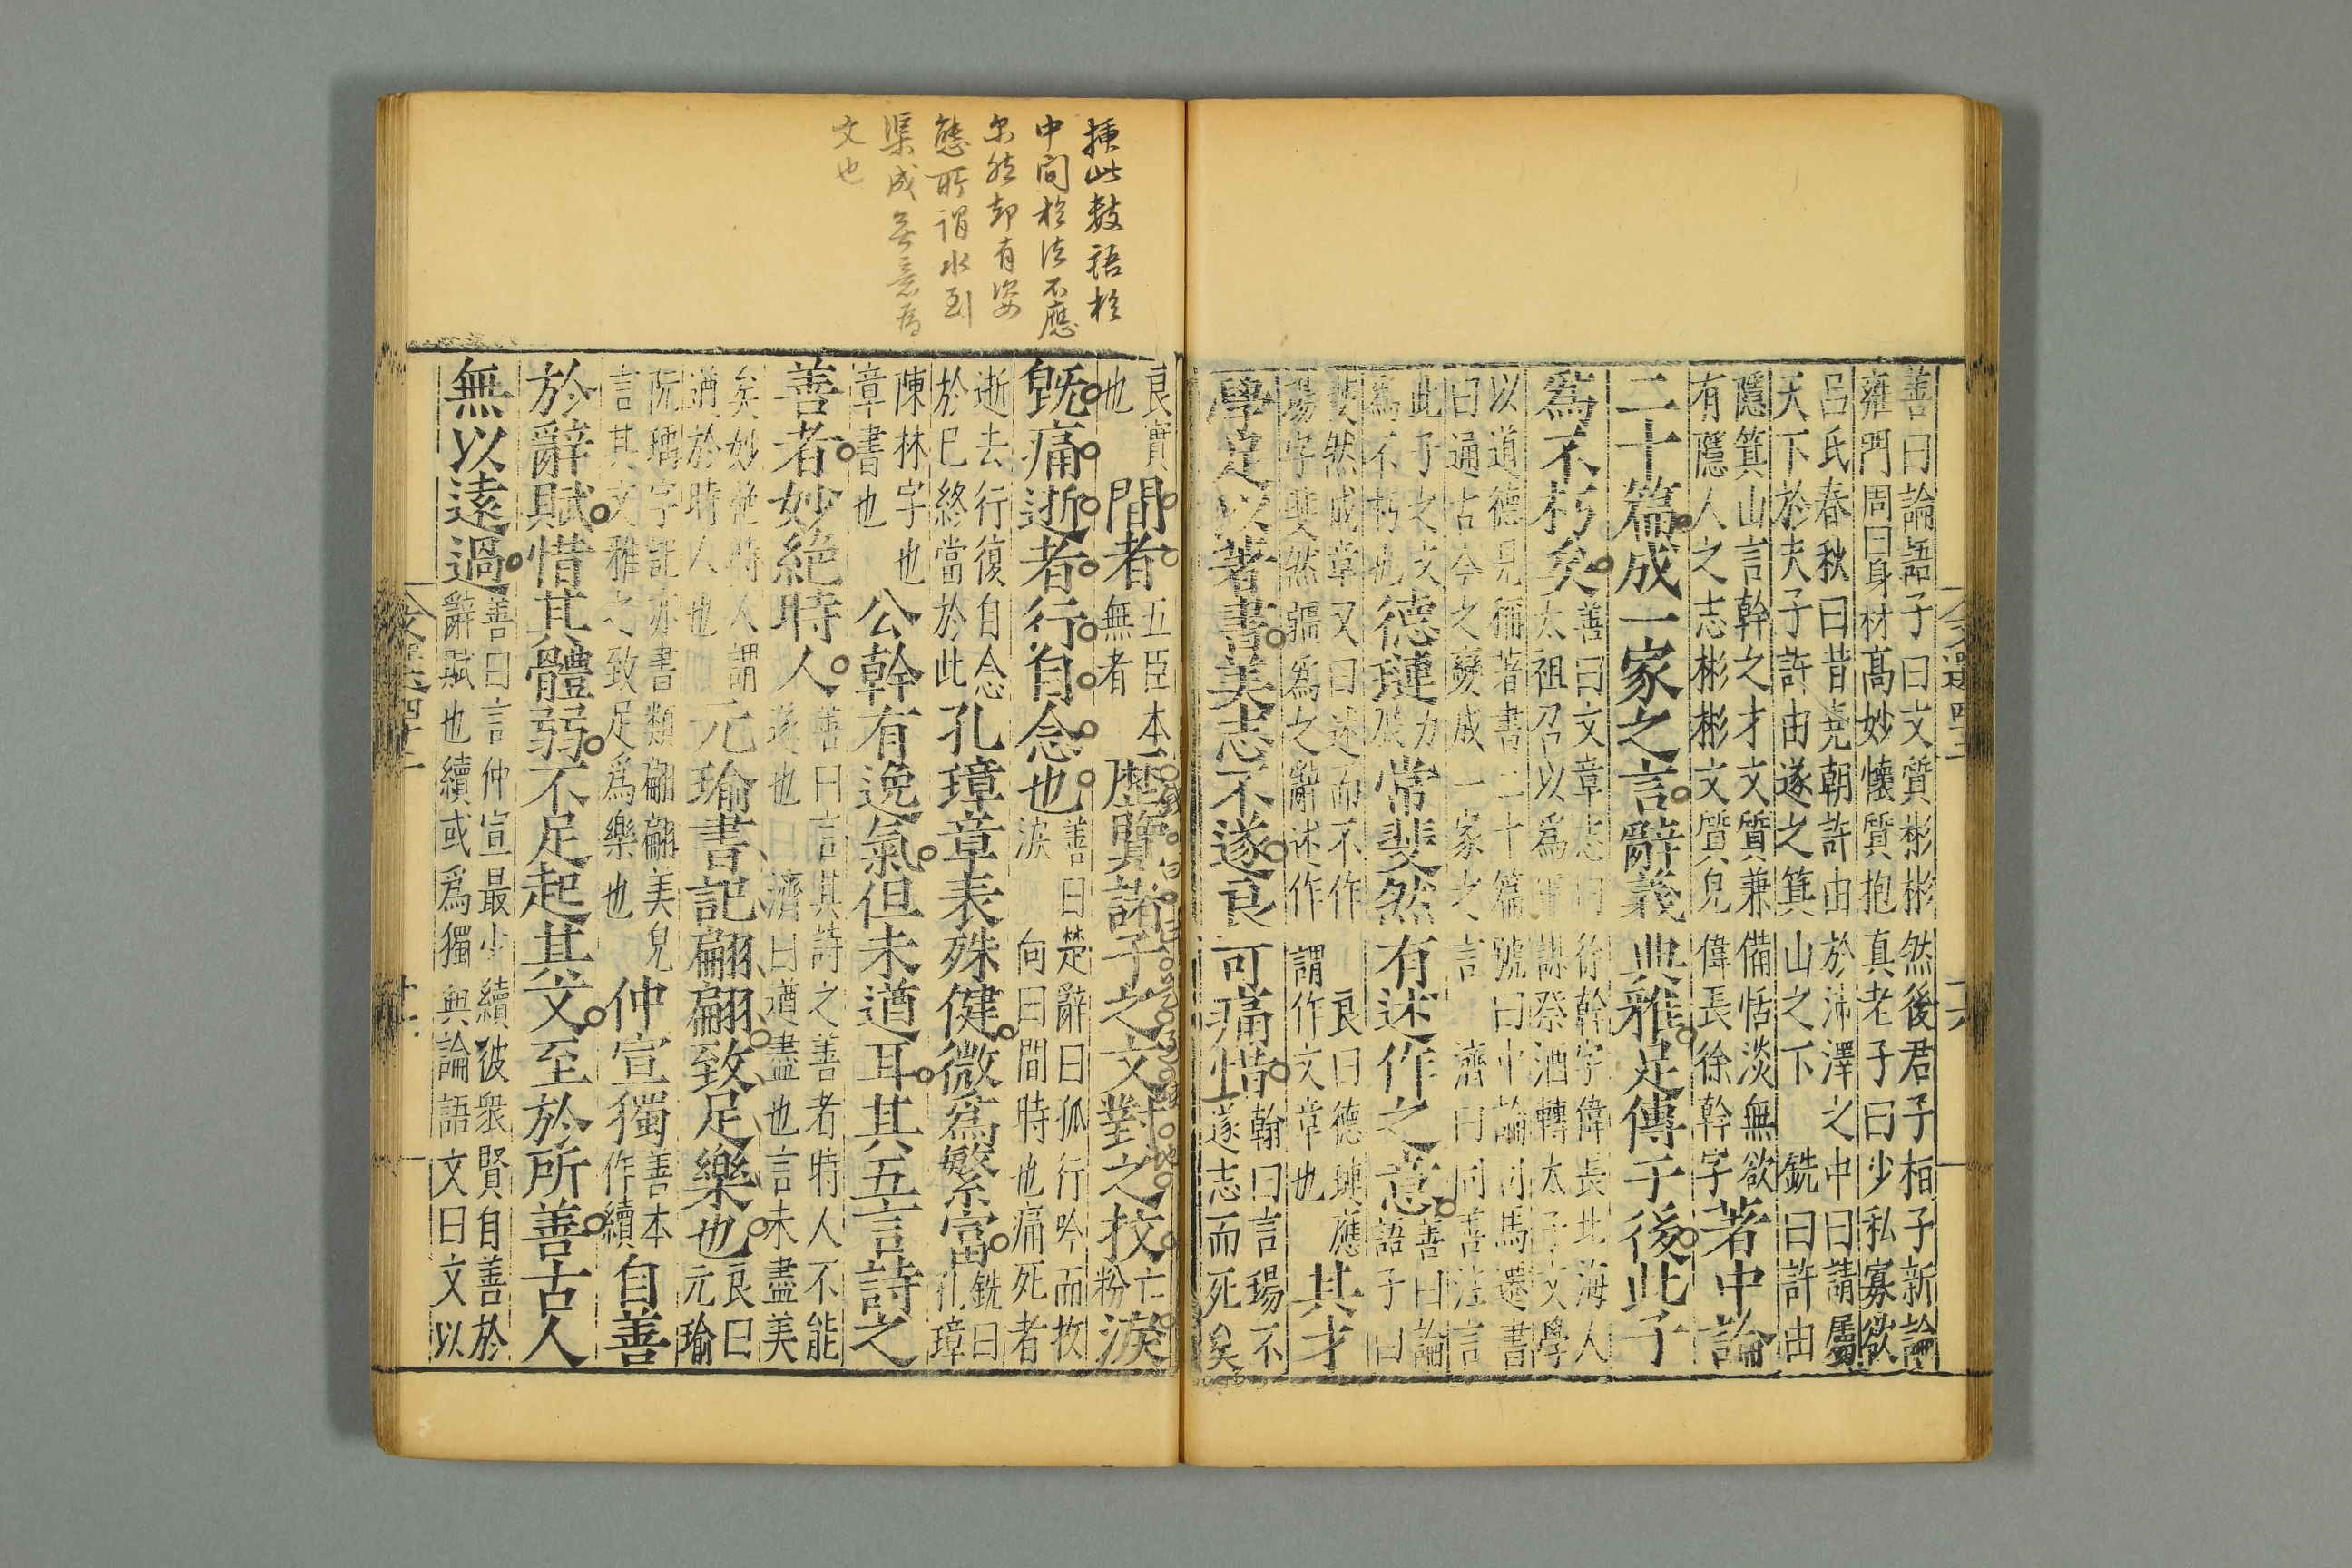 善曰論語子曰文質彬彬然後君子桓子新論
雍門周曰身材髙妙懷質抱真老子曰少私寡欲
呂氏春秋曰昔堯朝許由於沛澤之中曰請屬
天下於夫子許由遂之箕山之下　銑曰許由
隱箕山言幹之才文質兼備恬淡無欲
有隱人之志彬彬文質皃偉長徐幹字
著中論
二十篇成一家之言辭義典雅足傳于後此子
爲不朽矣
善曰文章志曰徐幹字偉長北海人
太祖召以爲軍謀祭酒轉太子文學
以道德見稱著書二十篇號曰中論司馬遷書
曰通古今之變成一家之言　濟曰同善注言
此子之文
爲不朽也
德璉
良力
展
常斐然有述作之意
善曰論
語子曰
斐然成章又曰述而不作　良曰德璉應
瑒字斐然彊爲之辭述作謂作文章也
其才
學足以著書美志不遂良可痛惜
翰曰言瑒不
遂志而死矣
良實
也
間者
五臣本
無者
歷覽諸子之文對之抆
亡
粉
淚
旣痛逝者行自念也
善曰楚辭曰孤行吟而抆
淚　向曰間時也痛死者
逝去行復自念
於已終當於此
孔璋章表殊健微爲繁富
銑曰
孔璋
陳林字也
章書也
公幹有逸氣但未遒耳其五言詩之
善者妙絶時人
善曰言其詩之善者時人不能
遂也　濟曰遒盡也言未盡美
矣妙絶時人謂
遒於時人也
元瑜書記翩翩致足樂也
良曰
元瑜
阮瑀字記亦書類翩翩美皃
言其文雅之致足爲樂也
仲宣獨
善本
作續
自善
於辭賦惜其體弱不足起其文至於所善古人
無以遠過
善曰言仲宣最少續彼衆賢自善於
辭賦也續或爲獨　與論語文曰文以
揷此数語於
中间於法不應
尔然却有姿
態所谓水到
渠成無意為
文也